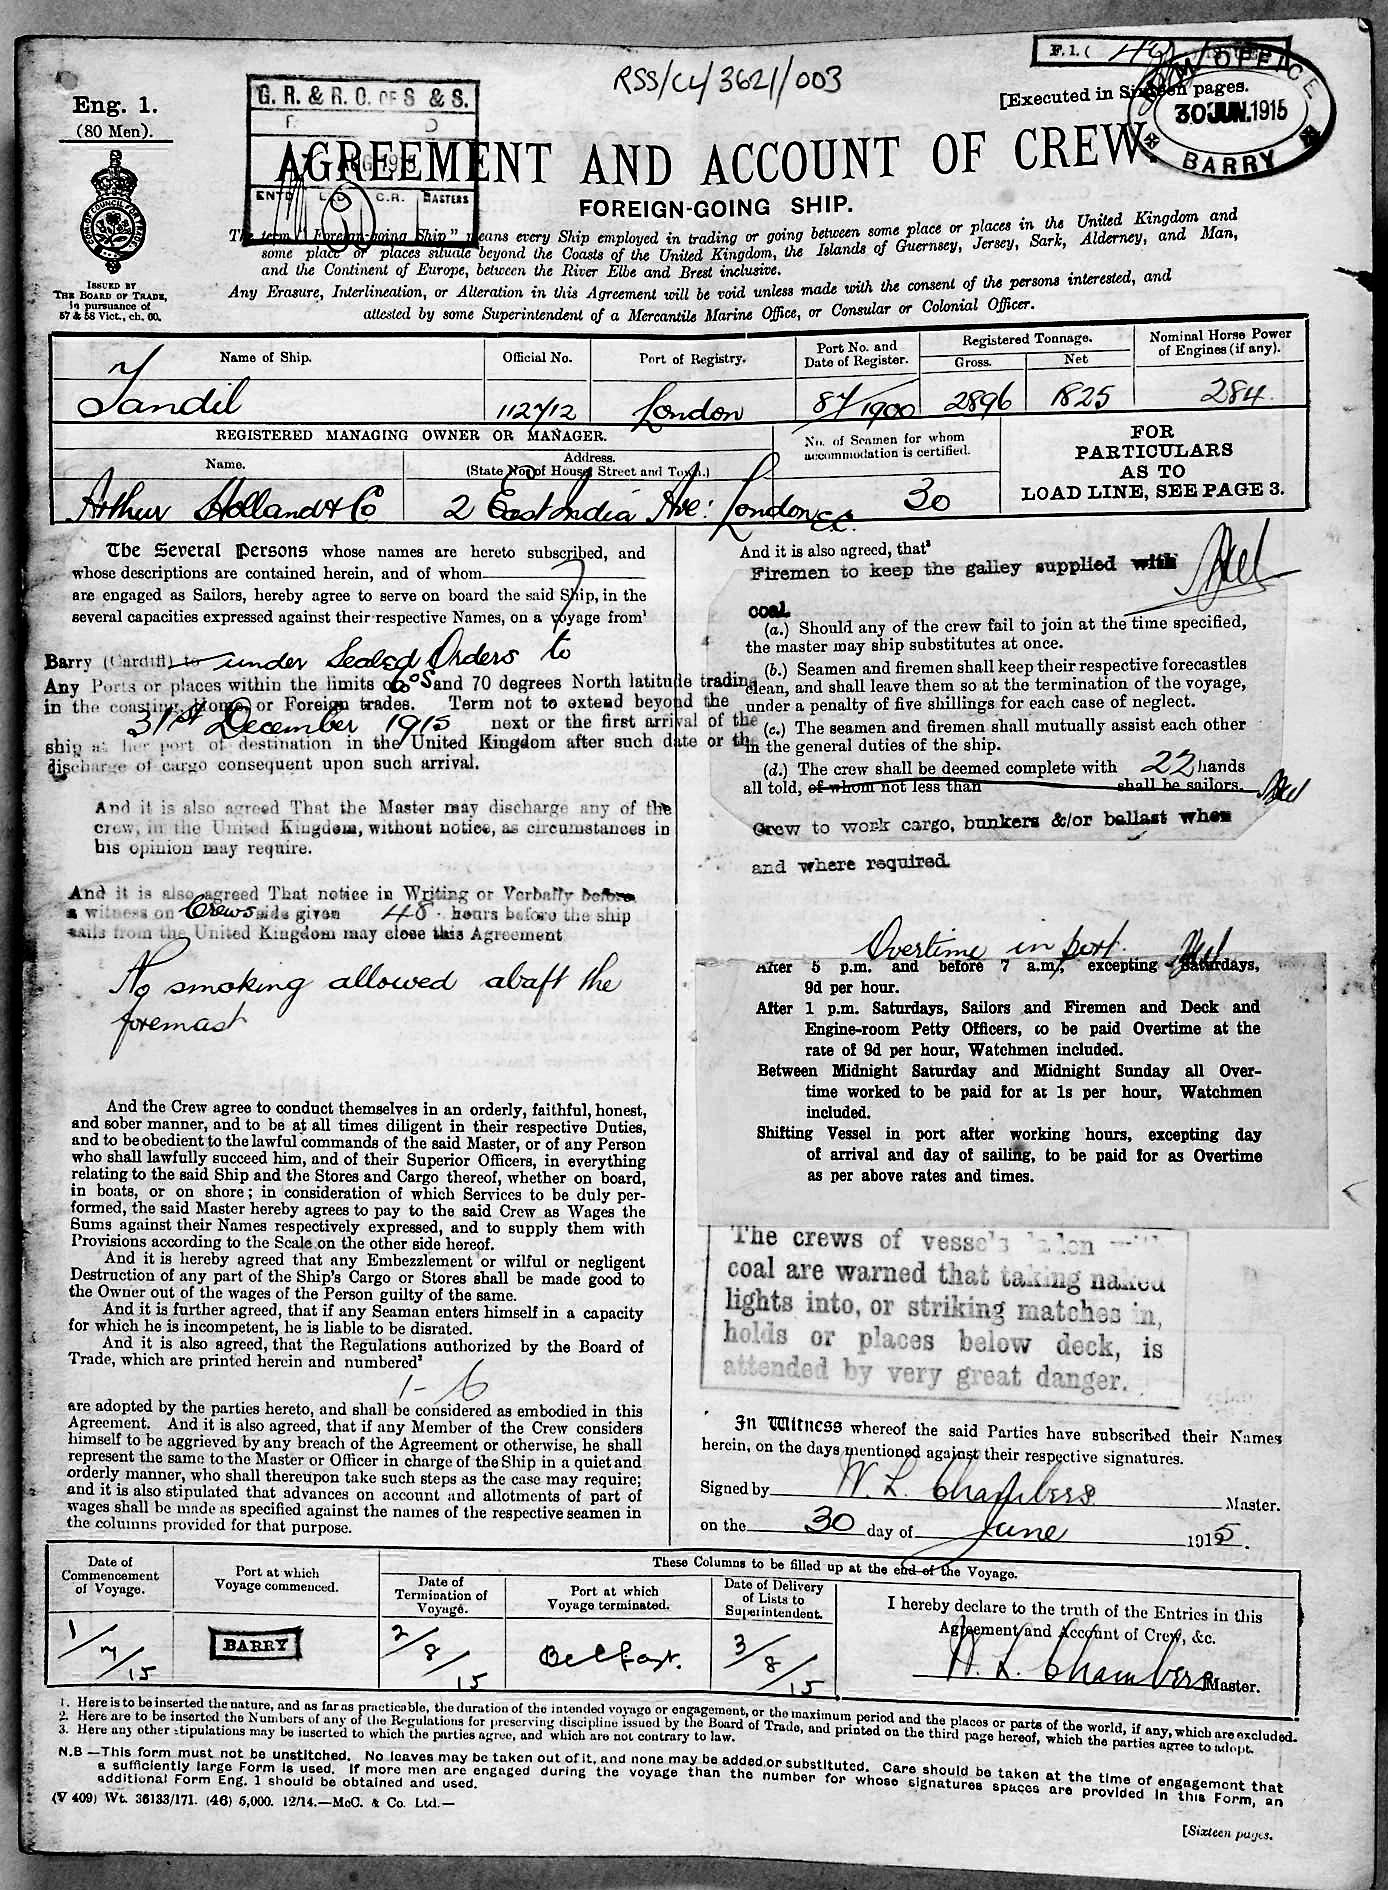 RSS/CL/3621/003
F. 1. (
[Executed in Sixteen pages.
M. M. OFFICE
30 JUN. 1915
BARRY
Eng. 1.
(80 Men).
G. R. & R. O. OF S & S.
ENTD C.R. MASTERS
AGREEMENT AND ACCOUNT OF CREW
FOREIGN-GOING SHIP.
The term "Foreign-going Ship" means every Ship employed in trading or going between some place or places in the United Kingdom and
some place or places situate beyond the Coasts of the United Kingdom, the Islands of Guernsey, Jersey, Sark, Alderney, and Man,
and the Continent of Europe, between the River Elbe and Brest inclusive.
Any Erasure, Interlineation, or Alteration in this Agreement will be void unless made with the consent of the persons interested, and
attested by some Superintendent of a Mercantile Marine Office, or Consular or Colonial Officer.
COM. OF COUNCIL FOR TRADE
ISSUED BY
THE BOARD OF TRADE,
in pursuance of
57 & 58 Vict., ch. 60.
Name of Ship.
Official No.
Port of Registry.
Port No. and
Date of Register.
Registered Tonnage.
Gross.
Net
Nominal Horse Power
of Engines (if any).
Tandil
112712
London
87/1900
2896
1825
284
REGISTERED MANAGING OWNER OR MANAGER.
Name.
Address.
(State No. of House, Street and Town.)
No. of Seamen for whom
accommodation is certified.
FOR
PARTICULARS
AS TO
LOAD LINE, SEE PAGE 3.
Arthur Holland & Co
2 East India Ave: London E.C.
30
The Several Persons whose names are hereto subscribed, and
whose descriptions are contained herein, and of whom 7
are engaged as Sailors, hereby agree to serve on board the said Ship, in the
several capacities expressed against their respective Names, on a voyage from¹
Barry (Cardiff) to under Sealed Orders to
Any Ports or places within the limits of 60 S and 70 degrees North latitude trading
in the coasting, Home, or Foreign trades. Term not to extend beyond the
31st December 1915 next or the first arrival of the
ship at her port of destination in the United Kingdom after such date or the
discharge of cargo consequent upon such arrival.
And it is also agreed That the Master may discharge any of the
crew, in the United Kingdom, without notice, as circumstances in
his opinion may require.
And it is also agreed That notice in Writing or Verbally before
a witness on Crews side given 48 hours before the ship
sails from the United Kingdom may close this Agreement
No smoking allowed abaft the
foremast
And the Crew agree to conduct themselves in an orderly, faithful, honest,
and sober manner, and to be at all times diligent in their respective Duties,
and to be obedient to the lawful commands of the said Master, or of any Person
who shall lawfully succeed him, and of their Superior Officers, in everything
relating to the said Ship and the Stores and Cargo thereof, whether on board,
in boats, or on shore; in consideration of which Services to be duly per-
formed, the said Master hereby agrees to pay to the said Crew as Wages the
Sums against their Names respectively expressed, and to supply them with
Provisions according to the Scale on the other side hereof.
And it is hereby agreed that any Embezzlement or wilful or negligent
Destruction of any part of the Ship's Cargo or Stores shall be made good to
the Owner out of the wages of the Person guilty of the same.
And it is further agreed, that if any Seaman enters himself in a capacity
for which he is incompetent, he is liable to be disrated.
And it is also agreed, that the Regulations authorized by the Board of
Trade, which are printed herein and numbered²
1 - 6
are adopted by the parties hereto, and shall be considered as embodied in this
Agreement. And it is also agreed, that if any Member of the Crew considers
himself to be aggrieved by any breach of the Agreement or otherwise, he shall
represent the same to the Master or Officer in charge of the Ship in a quiet and
orderly manner, who shall thereupon take such steps as the case may require;
and it is also stipulated that advances on account and allotments of part of
wages shall be made as specified against the names of the respective seamen in
the columns provided for that purpose.
And it is also agreed, that³
Firemen to keep the galley supplied with
coal
(a.) Should any of the crew fail to join at the time specified,
the master may ship substitutes at once.
(b.) Seamen and firemen shall keep their respective forecastles
clean, and shall leave them so at the termination of the voyage,
under a penalty of five shillings for each case of neglect.
(c.) The seamen and firemen shall mutually assist each other
in the general duties of the ship.
(d.) The crew shall be deemed complete with 22 hands
all told, of whom not less than shall be sailors.
Crew to work cargo, bunkers &/or ballast when
and where required.
Overtime in port.
After 5 p.m. and before 7 a.m., excepting Saturdays,
9d per hour.
After 1 p.m. Saturdays, Sailors and Firemen and Deck and
Engine-room Petty Officers, to be paid Overtime at the
rate of 9d per hour, Watchmen included.
Between Midnight Saturday and Midnight Sunday all Over-
time worked to be paid for at 1s per hour, Watchmen
included.
Shifting Vessel in port after working hours, excepting day
of arrival and day of sailing, to be paid for as Overtime
as per above rates and times.
The crews of vessels laden with
coal are warned that taking naked
lights into, or striking matches in,
holds or places below deck, is
attended by very great danger.
In Witness whereof the said Parties have subscribed their Names
herein, on the days mentioned against their respective signatures.
Signed by W. L. Chambers Master.
on the 30 day of June 1915.
Date of
Commencement
of Voyage.
Port at which
Voyage commenced.
These Columns to be filled up at the end of the Voyage.
Date of
Termination of
Voyage.
Port at which
Voyage terminated.
Date of Delivery
of Lists to
Superintendent.
I hereby declare to the truth of the Entries in this
Agreement and Account of Crew, &c.
1/7/15
BARRY
2/8/15
Belfast.
3/8/15
W. L. Chambers Master.
1. Here is to be inserted the nature, and as far as practicable, the duration of the intended voyage or engagement, or the maximum period and the places or parts of the world, if any, which are excluded.
2. Here are to be inserted the Numbers of any of the Regulations for preserving discipline issued by the Board of Trade, and printed on the third page hereof, which the parties agree to adopt.
3. Here any other stipulations may be inserted to which the parties agree, and which are not contrary to law.
N.B —This form must not be unstitched. No leaves may be taken out of it, and none may be added or substituted. Care should be taken at the time of engagement that
a sufficiently large Form is used. If more men are engaged during the voyage than the number for whose signatures spaces are provided in this Form, an
additional Form Eng. 1 should be obtained and used.
(V 409) Wt. 36133/171. (46) 5,000. 12/14.—McC. & Co. Ltd.—
[Sixteen pages.